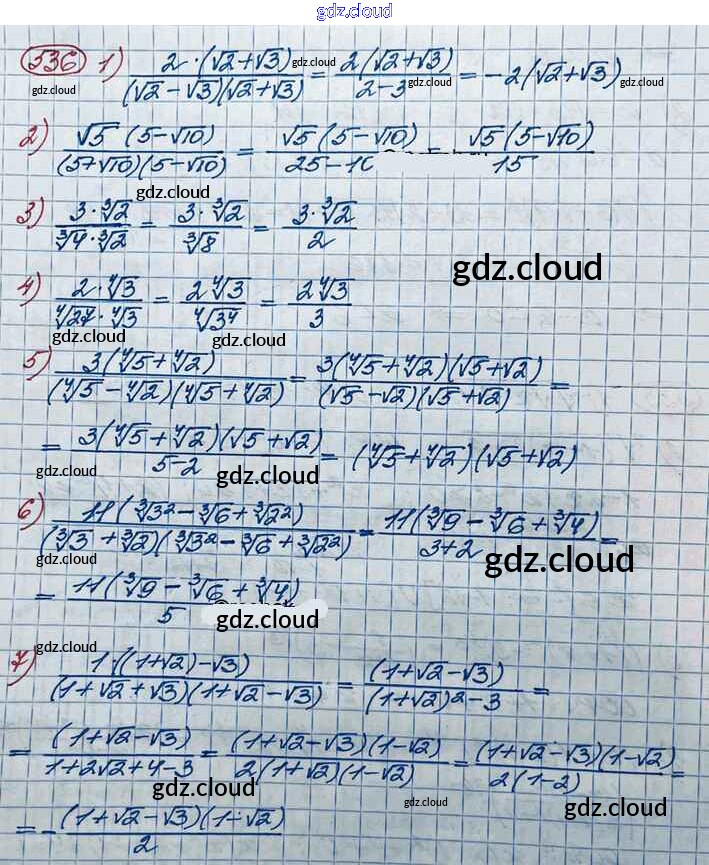 gdz.cloud
536 1) 2·(√2+√3)/(√2-√3)(√2+√3) = 2(√2+√3)/2-3 = -2(√2+√3) gdz.cloud
gdz.cloud gdz.cloud gdz.cloud
2) √5(5-√10)/(5+√10)(5-√10) = √5(5-√10)/25-10 = √5(5-√10)/15
gdz.cloud
3) 3·∛2/∛4·∛2 = 3·∛2/∛8 = 3·∛2/2
gdz.cloud
4) 2·∜3/∜27·∜3 = 2∜3/∜3⁴ = 2∜3/3
gdz.cloud gdz.cloud
5) 3(∜5+∜2)/(∜5-∜2)(∜5+∜2) = 3(∜5+∜2)(√5+√2)/(√5-√2)(√5+√2) =
= 3(∜5+∜2)(√5+√2)/5-2 = (∜5+∜2)(√5+√2)
gdz.cloud gdz.cloud gdz.cloud
6) 11(∛3²-∛6+∛2²)/(∛3+∛2)(∛3²-∛6+∛2²) = 11(∛9-∛6+∛4)/3+2 =
gdz.cloud
= 11(∛9-∛6+∛4)/5
gdz.cloud gdz.cloud
7) 1·((1+√2)-√3)/(1+√2+√3)(1+√2-√3) = (1+√2-√3)/(1+√2)²-3 =
gdz.cloud
= (1+√2-√3)/1+2√2+4-3 = (1+√2-√3)(1-√2)/2(1+√2)(1-√2) = (1+√2-√3)(1-√2)/2(1-2) =
gdz.cloud gdz.cloud gdz.cloud
= -(1+√2-√3)(1-√2)/2